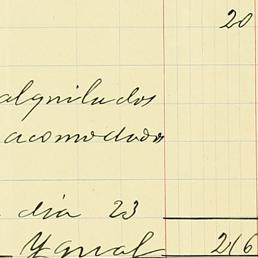 20
alquilados
acomodados
dia 23
Ygual 216